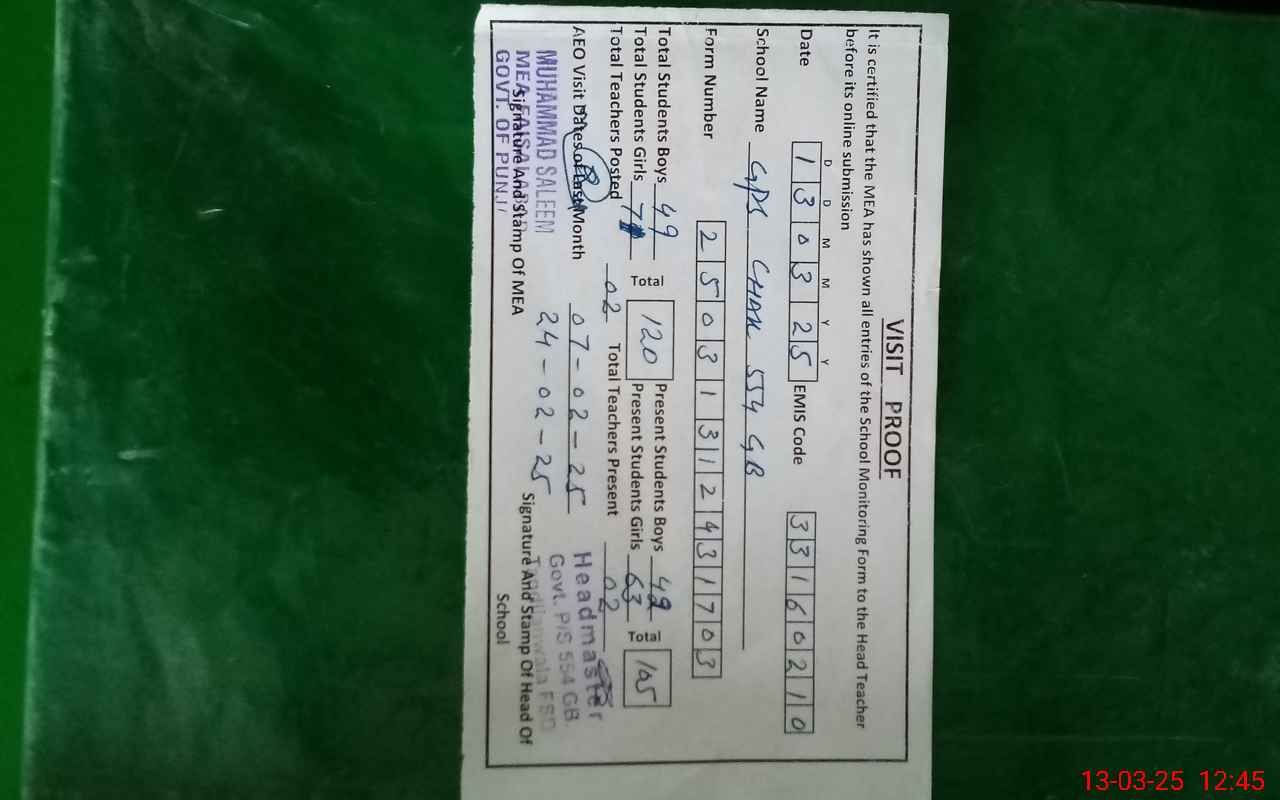 VISIT PROOF
It is certified that the MEA has shown all entries of the School Monitoring Form to the Head Teacher
before its online submission
D D M M Y Y
Date 1 3 0 3 2 5 EMIS Code 3 3 1 6 0 2 1 0
School Name GPS CHAK 554 GB
Form Number 2 5 0 3 1 3 1 2 4 3 1 7 0 3
Total Students Boys 49 Total 120 Present Students Boys 42 Total 105
Total Students Girls 71 Present Students Girls 63
Total Teachers Posted 02 Total Teachers Present 02
AEO Visit Dates of Last Month 07-02-25
24-02-25
MUHAMMAD SALEEM
MEA FAISALABAD
GOVT. OF PUNJ
Signature And Stamp Of MEA
Headmaster
Govt. P/S 554 GB.
Tandlianwala FSD
Signature And Stamp Of Head Of
School
13-03-25 12:45